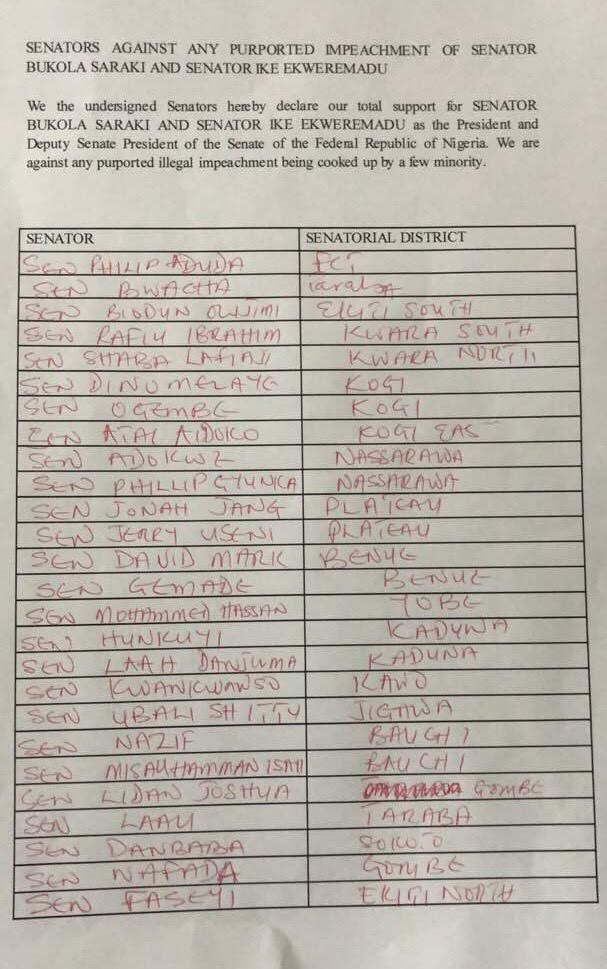 SENATORS AGAINST ANY PURPORTED IMPEACHMENT OF SENATOR
BUKOLA SARAKI AND SENATOR IKE EKWEREMADU
We the undersigned Senators hereby declare our total support for SENATOR
BUKOLA SARAKI AND SENATOR IKE EKWEREMADU as the President and
Deputy Senate President of the Senate of the Federal Republic of Nigeria. We are
against any purported illegal impeachment being cooked up by a few minority.
SENATOR SENATORIAL DISTRICT
SEN PHILIP ADUDA FCT
SEN BWACHA Taraba
SEN BIODUN OLUJIMI EKITI SOUTH
SEN RAFIU IBRAHIM KWARA SOUTH
SEN SHABA LAFIAJI KWARA NORTH
SEN DINO MELAYE KOGI
SEN OGEMBE KOGI
SEN ATAI AIDOKO KOGI EAS
SEN ADOKWE NASSARAWA
SEN PHILLIP GYUNKA NASSARAWA
SEN JONAH JANG PLATEAU
SEN JERRY USENI PLATEAU
SEN DAVID MARK BENUE
SEN GEMADE BENUE
SEN MOHAMMED HASSAN YOBE
SEN HUNKUYI KADUNA
SEN LAAH DANJUMA KADUNA
SEN KWANKWANSO KANO
SEN UBALI SHITTU JIGAWA
SEN NAZIF BAUCHI
SEN MISAU HAMMAN ISAH BAUCHI
SEN LIDAN JOSHUA GOMBE
SEN LAAU TARABA
SEN DANBABA SOKOTO
SEN NAFADA GOMBE
SEN FASEYI EKITI NORTH